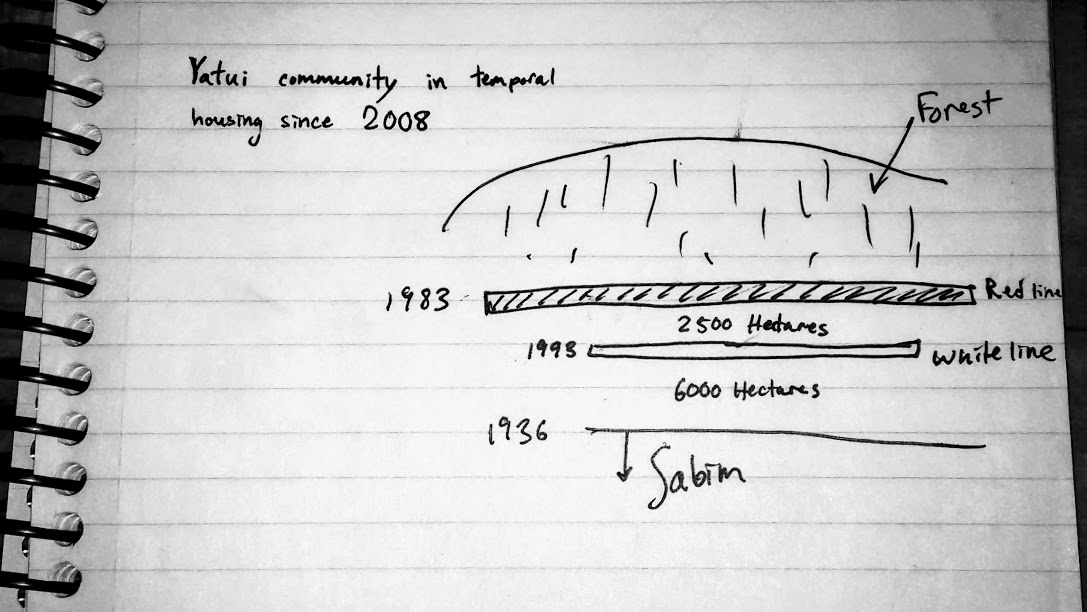 Yatui community in temporal
housing since 2008
Forest
1983
Red line
2500 Hectares
1993
white line
6000 Hectares
1936
Sabim